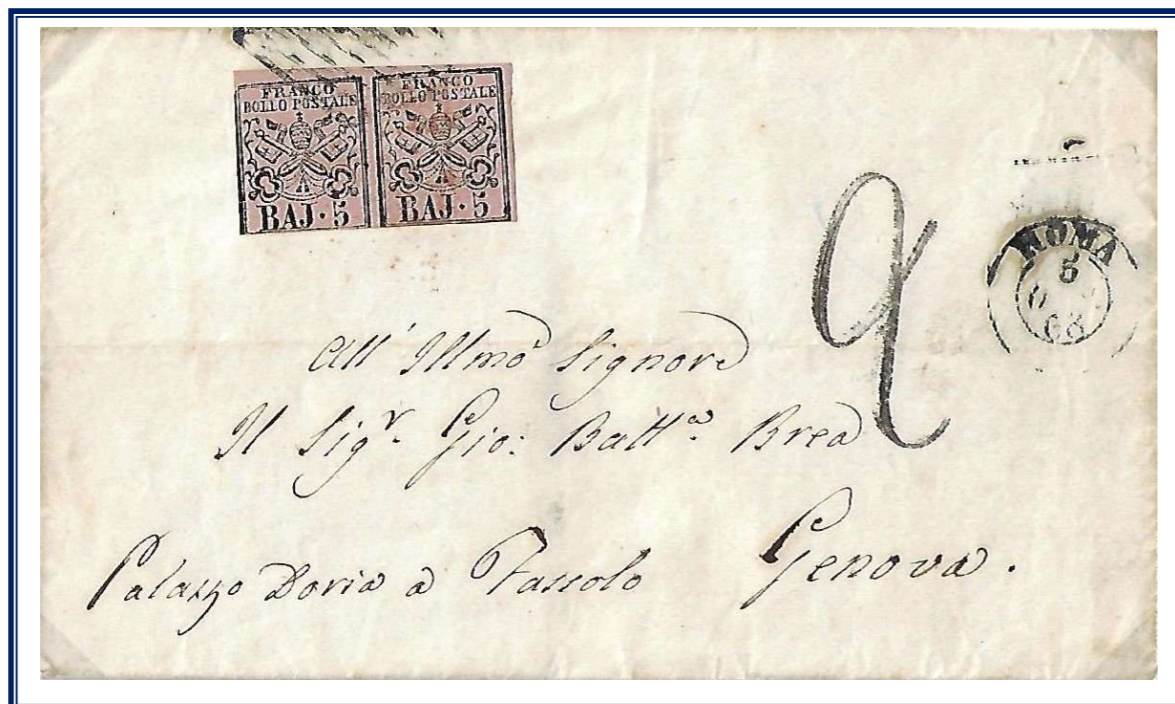 FRANCO
BOLLO POSTALE
BAJ·5
FRANCO
BOLLO POSTALE
BAJ·5
2
ROMA
5
68
All' Illmo Signore
Il Sigr. Gio: Batta. Brea
Palazzo Doria a Fassolo Genova.